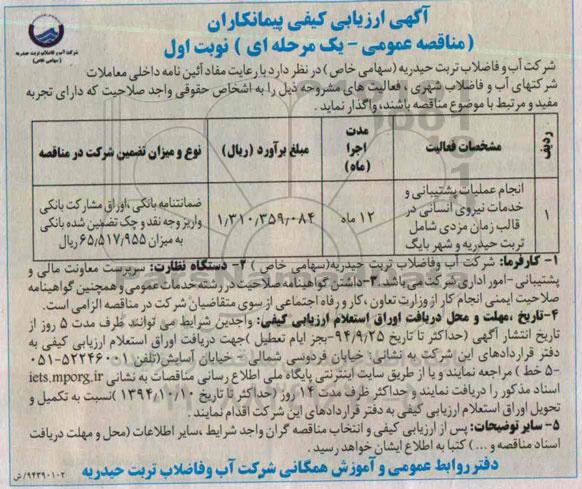 آگهی ارزیابی کیفی پیمانکاران
(مناقصه عمومی - یک مرحله ای ) نوبت اول
شرکت آب و فاضلاب تربت حیدریه
(سهامی خاص)
شرکت آب و فاضلاب تربت حیدریه (سهامی خاص) در نظر دارد با رعایت مفاد آئین نامه داخلی معاملات
شرکتهای آب و فاضلاب شهری ، فعالیت های مشروحه ذیل را به اشخاص حقوقی واجد صلاحیت که دارای تجربه
مفید و مرتبط با موضوع مناقصه باشند، واگذار نماید .
ردیف
مشخصات فعالیت
مدت اجرا (ماه)
مبلغ برآورد (ریال)
نوع و میزان تضمین شرکت در مناقصه
۱
انجام عملیات پشتیبانی و
خدمات نیروی انسانی در
قالب زمان مزدی شامل
تربت حیدریه و شهر بایگ
۱۲ ماه
۱/۳۱۰/۳۵۹/۰۸۴
ضمانتنامه بانکی ،اوراق مشارکت بانکی
واریز وجه نقد و چک تضمین شده بانکی
به میزان ۶۵/۵۱۷/۹۵۵ ریال
۱- کارفرما: شرکت آب وفاضلاب تربت حیدریه(سهامی خاص ) ۲- دستگاه نظارت: سرپرست معاونت مالی و
پشتیبانی -امور اداری شرکت می باشد. ۳-داشتن گواهینامه صلاحیت در رشته خدمات عمومی و همچنین گواهینامه
صلاحیت ایمنی انجام کار از وزارت تعاون ،کار و رفاه اجتماعی از سوی متقاضیان شرکت در مناقصه الزامی است.
۴-تاریخ ،مهلت و محل دریافت اوراق استعلام ارزیابی کیفی: واجدین شرایط می توانند ظرف مدت ۵ روز از
تاریخ انتشار آگهی (حداکثر تا تاریخ ۹۴/۹/۲۵-بجز ایام تعطیل )جهت دریافت اوراق استعلام ارزیابی کیفی به
دفتر قراردادهای این شرکت به نشانی: خیابان فردوسی شمالی - خیابان آسایش(تلفن ۵۲۲۴۶۰۰۱-۰۵۱
-۵ خط ) مراجعه نمایند و یا از طریق سایت اینترنتی پایگاه ملی اطلاع رسانی مناقصات به نشانی iets.mporg.ir
اسناد مذکور را دریافت نمایند و حداکثر ظرف مدت ۱۴ روز (حداکثر تا تاریخ ۱۳۹۴/۱۰/۱۰ )نسبت به تکمیل و
تحویل اوراق استعلام ارزیابی کیفی به دفتر قراردادهای این شرکت اقدام نمایند .
۵- سایر توضیحات: پس از ارزیابی کیفی و انتخاب مناقصه گران واجد شرایط ،سایر اطلاعات (محل و مهلت دریافت
اسناد مناقصه و ...) کتبا به اطلاع ایشان خواهد رسید .
دفتر روابط عمومی و آموزش همگانی شرکت آب وفاضلاب تربت حیدریه
۹۴۳۹۰۱۰۲/ش